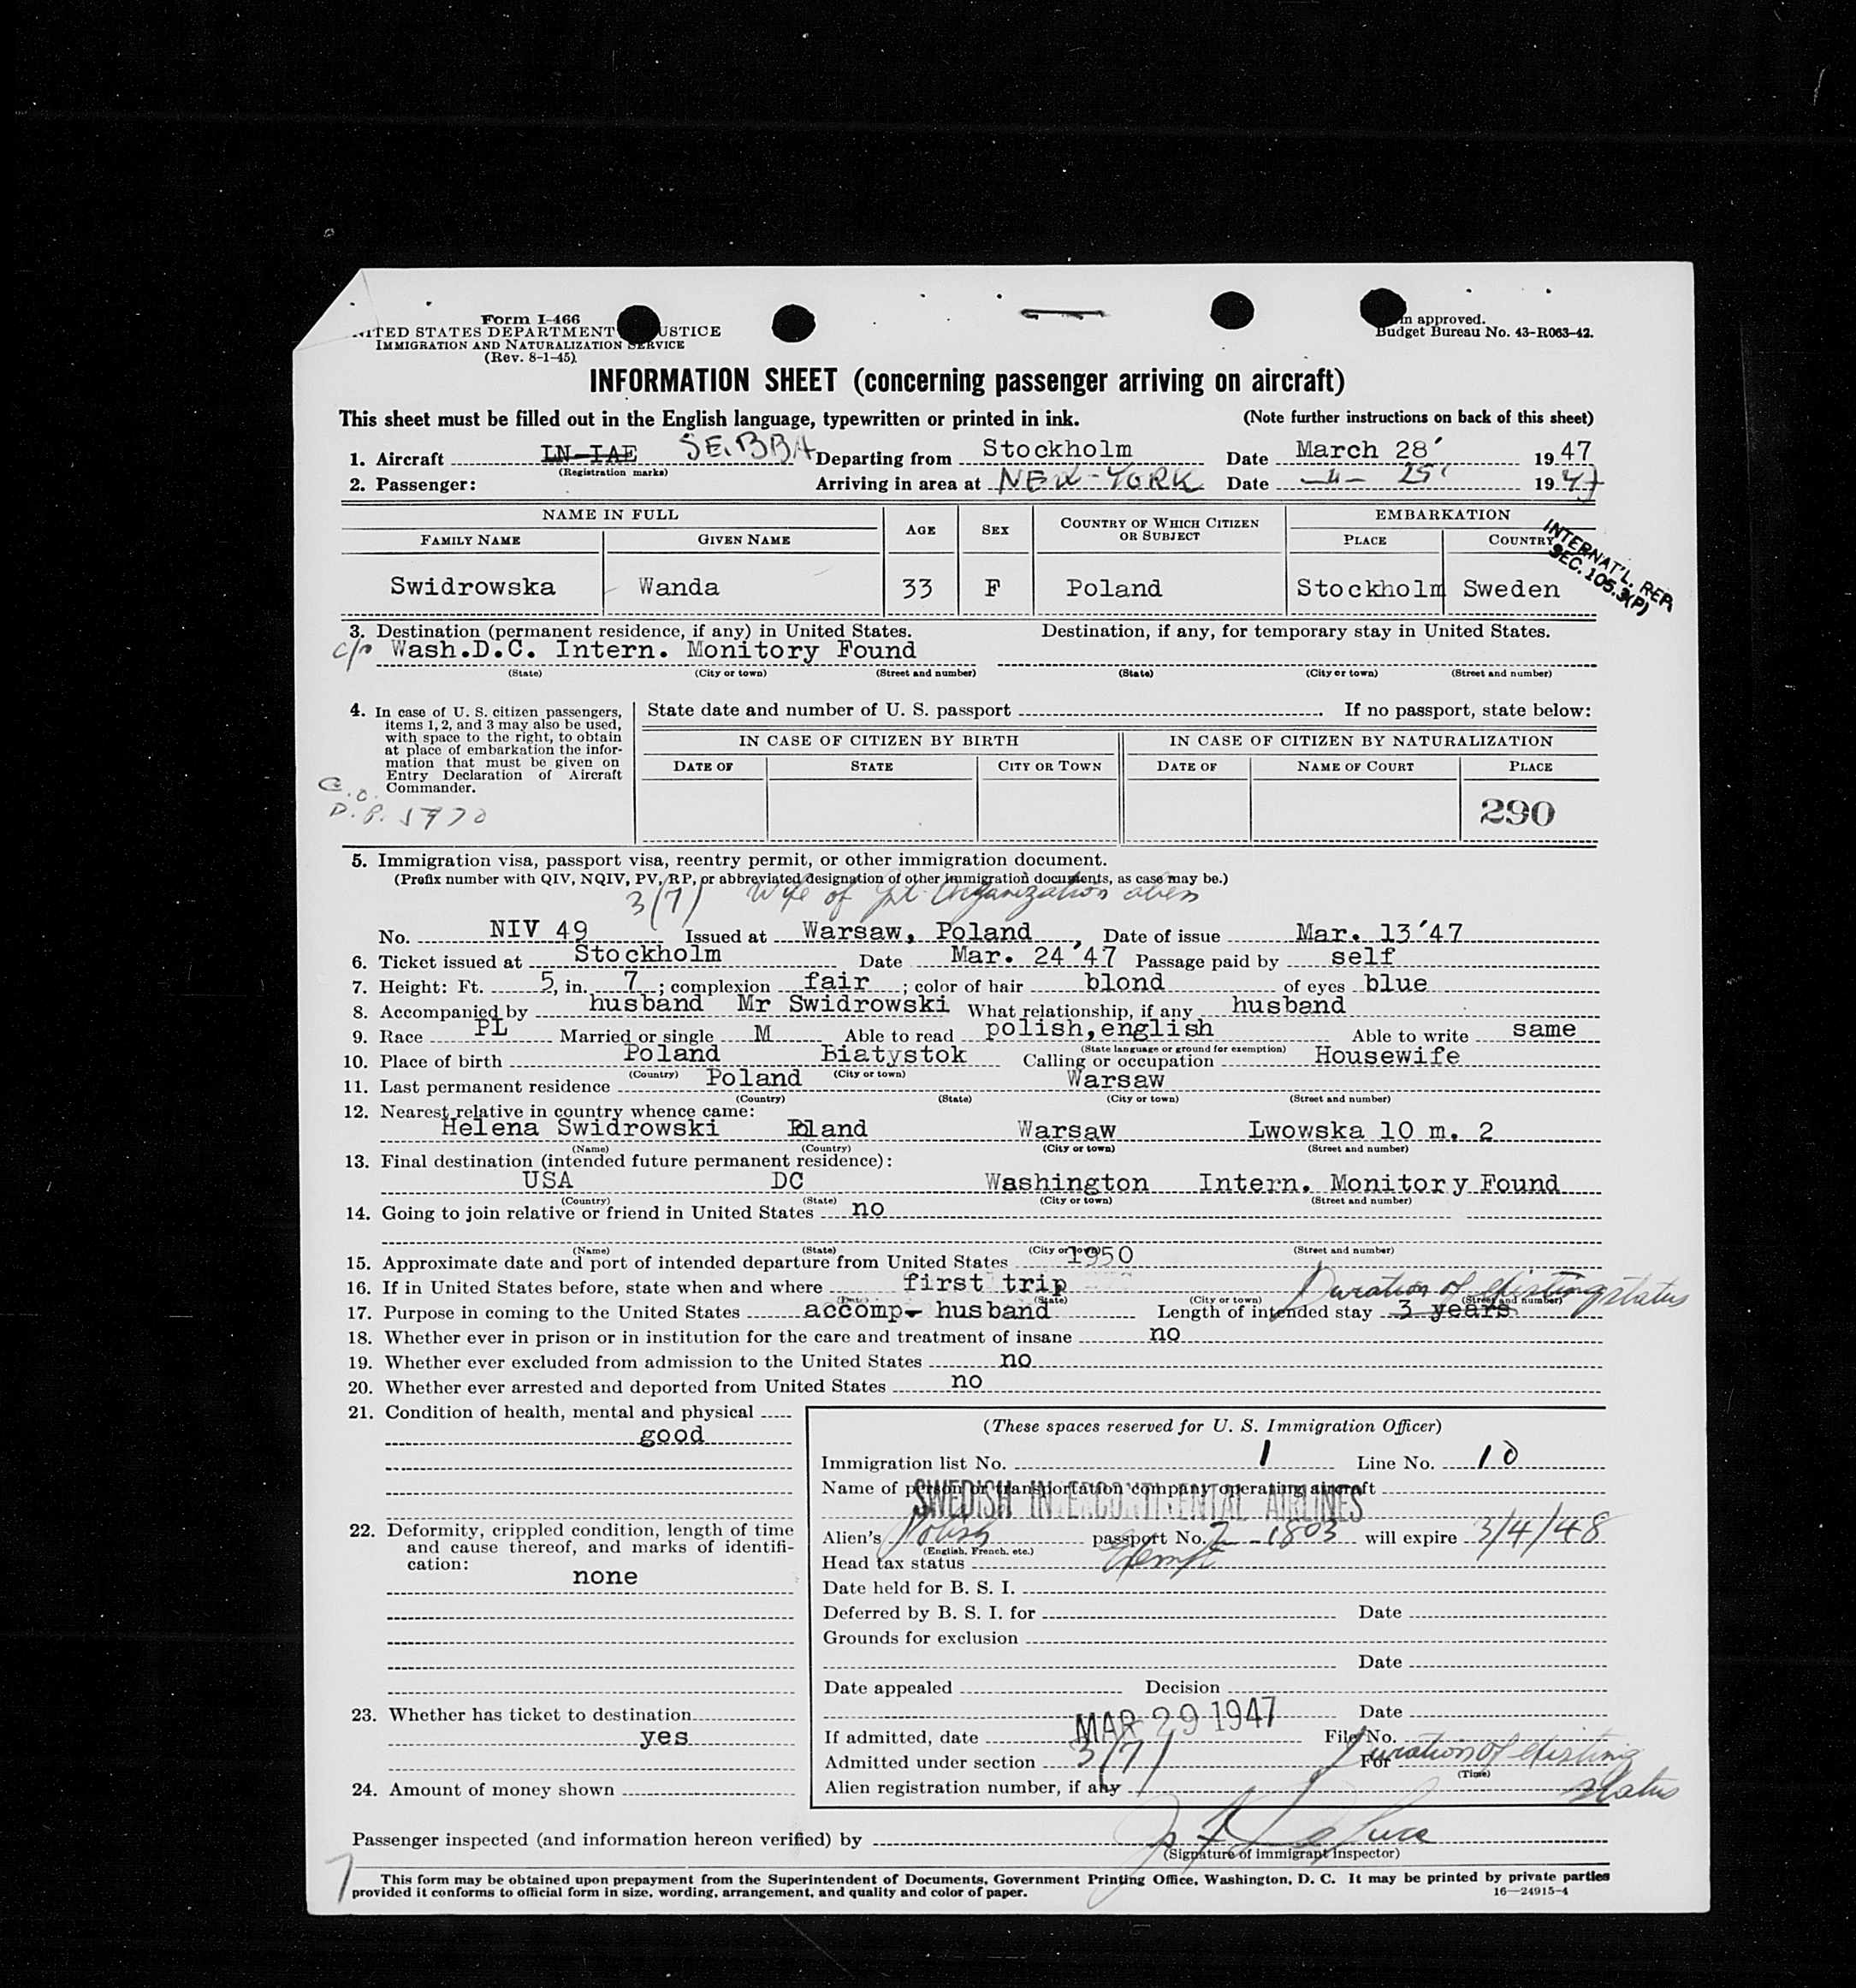 Form I-466
UNITED STATES DEPARTMENT JUSTICE
IMMIGRATION AND NATURALIZATION SERVICE
(Rev. 8-1-45)
approved.
Budget Bureau No. 43-R063-42.
INFORMATION SHEET (concerning passenger arriving on aircraft)
This sheet must be filled out in the English language, typewritten or printed in ink. (Note further instructions on back of this sheet)
1. Aircraft LN-IAE SE.BBA Departing from Stockholm Date March 28' 1947
(Registration marks)
2. Passenger: Arriving in area at NEW-YORK Date -"- 1947
NAME IN FULL AGE SEX COUNTRY OF WHICH CITIZEN OR SUBJECT EMBARKATION
FAMILY NAME GIVEN NAME PLACE COUNTRY
INTERNAT'L. REP.
SEC. 105.3(P)
Swidrowska Wanda 33 F Poland Stockholm Sweden
3. Destination (permanent residence, if any) in United States. Destination, if any, for temporary stay in United States.
c/o Wash.D.C. Intern. Monitory Found
(State) (City or town) (Street and number) (State) (City or town) (Street and number)
4. In case of U. S. citizen passengers,
items 1, 2, and 3 may also be used,
with space to the right, to obtain
at place of embarkation the infor-
mation that must be given on
Entry Declaration of Aircraft
Commander.
State date and number of U. S. passport . If no passport, state below:
IN CASE OF CITIZEN BY BIRTH IN CASE OF CITIZEN BY NATURALIZATION
DATE OF STATE CITY OR TOWN DATE OF NAME OF COURT PLACE
290
C.O.
D.P. 5970
5. Immigration visa, passport visa, reentry permit, or other immigration document.
(Prefix number with QIV, NQIV, PV, RP, or abbreviated designation of other immigration documents, as case may be.)
3(7) Wife of Int. Organization alien
No. NIV 49 Issued at Warsaw, Poland Date of issue Mar. 13'47
6. Ticket issued at Stockholm Date Mar. 24'47 Passage paid by self
7. Height: Ft. 5, in. 7; complexion fair; color of hair blond of eyes blue
8. Accompanied by husband Mr Swidrowski What relationship, if any husband
9. Race PL Married or single M Able to read polish,english Able to write same
(State language or ground for exemption)
10. Place of birth Poland Biatystok Calling or occupation Housewife
(Country) (City or town)
11. Last permanent residence Poland Warsaw
(Country) (State) (City or town) (Street and number)
12. Nearest relative in country whence came:
Helena Swidrowski Poland Warsaw Lwowska 10 m. 2
(Name) (Country) (City or town) (Street and number)
13. Final destination (intended future permanent residence):
USA DC Washington Intern. Monitory Found
(Country) (State) (City or town) (Street and number)
14. Going to join relative or friend in United States no
(Name) (State) (City or town) (Street and number)
15. Approximate date and port of intended departure from United States 1950
16. If in United States before, state when and where first trip
(Date) (State) (City or town) (Street and number)
Duration of existing status
17. Purpose in coming to the United States accomp- husband Length of intended stay 3 years
18. Whether ever in prison or in institution for the care and treatment of insane no
19. Whether ever excluded from admission to the United States no
20. Whether ever arrested and deported from United States no
21. Condition of health, mental and physical
good
22. Deformity, crippled condition, length of time
and cause thereof, and marks of identifi-
cation:
none
23. Whether has ticket to destination
yes
24. Amount of money shown
(These spaces reserved for U. S. Immigration Officer)
Immigration list No. 1 Line No. 10
Name of person or transportation company operating aircraft
SWEDISH INTERCONTINENTAL AIRLINES
Alien's Polish passport No. 1803 will expire 3/4/48
(English, French, etc.)
Head tax status Exempt
Date held for B. S. I.
Deferred by B. S. I. for Date
Grounds for exclusion
Date
Date appealed Decision
Date
If admitted, date MAR 29 1947 File No.
Admitted under section 3(7) For Duration of existing status
(Time)
Alien registration number, if any
Passenger inspected (and information hereon verified) by
(Signature of immigrant inspector)
This form may be obtained upon prepayment from the Superintendent of Documents, Government Printing Office, Washington, D. C. It may be printed by private parties
provided it conforms to official form in size, wording, arrangement, and quality and color of paper. 16—24915-4